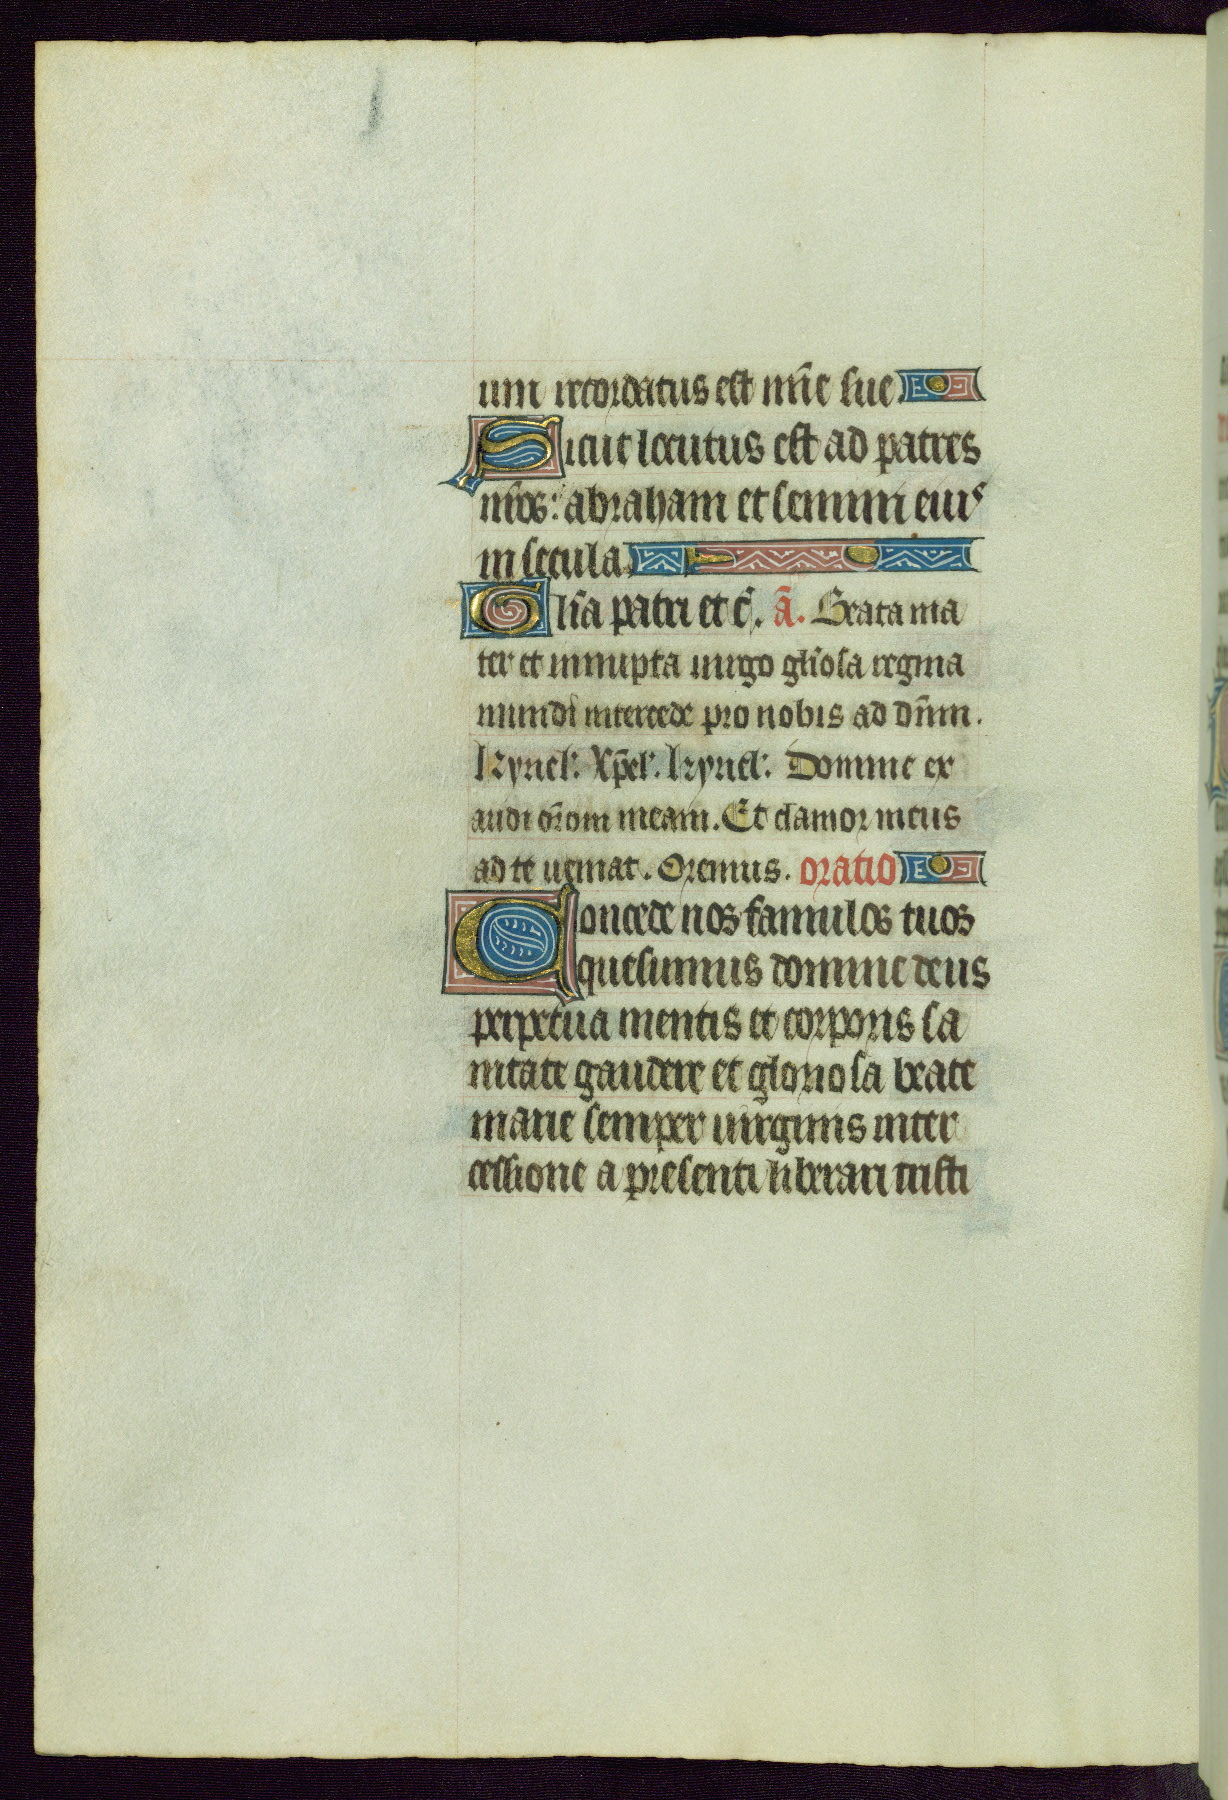 um recordatus est mīe sue.
Sicut locutus est ad patres
nr̄os: abraham et semini eius
in secula.
Glīa patri et c̄. ā. Beata ma
ter et innupta uirgo gl̄iosa regina
mundi intercede pro nobis ad dn̄m.
kyriel'. Xp̄el'. kyriel'. Domine ex
audi or̄om meam. Et clamor meus
ad te ueniat. Oremus. oratio
Concede nos famulos tuos
quesumus domine deus
perpetua mentis et corporis sa
nitate gaudere et gloriosa beate
marie semper uirginis inter
cessione a presenti liberari tristi